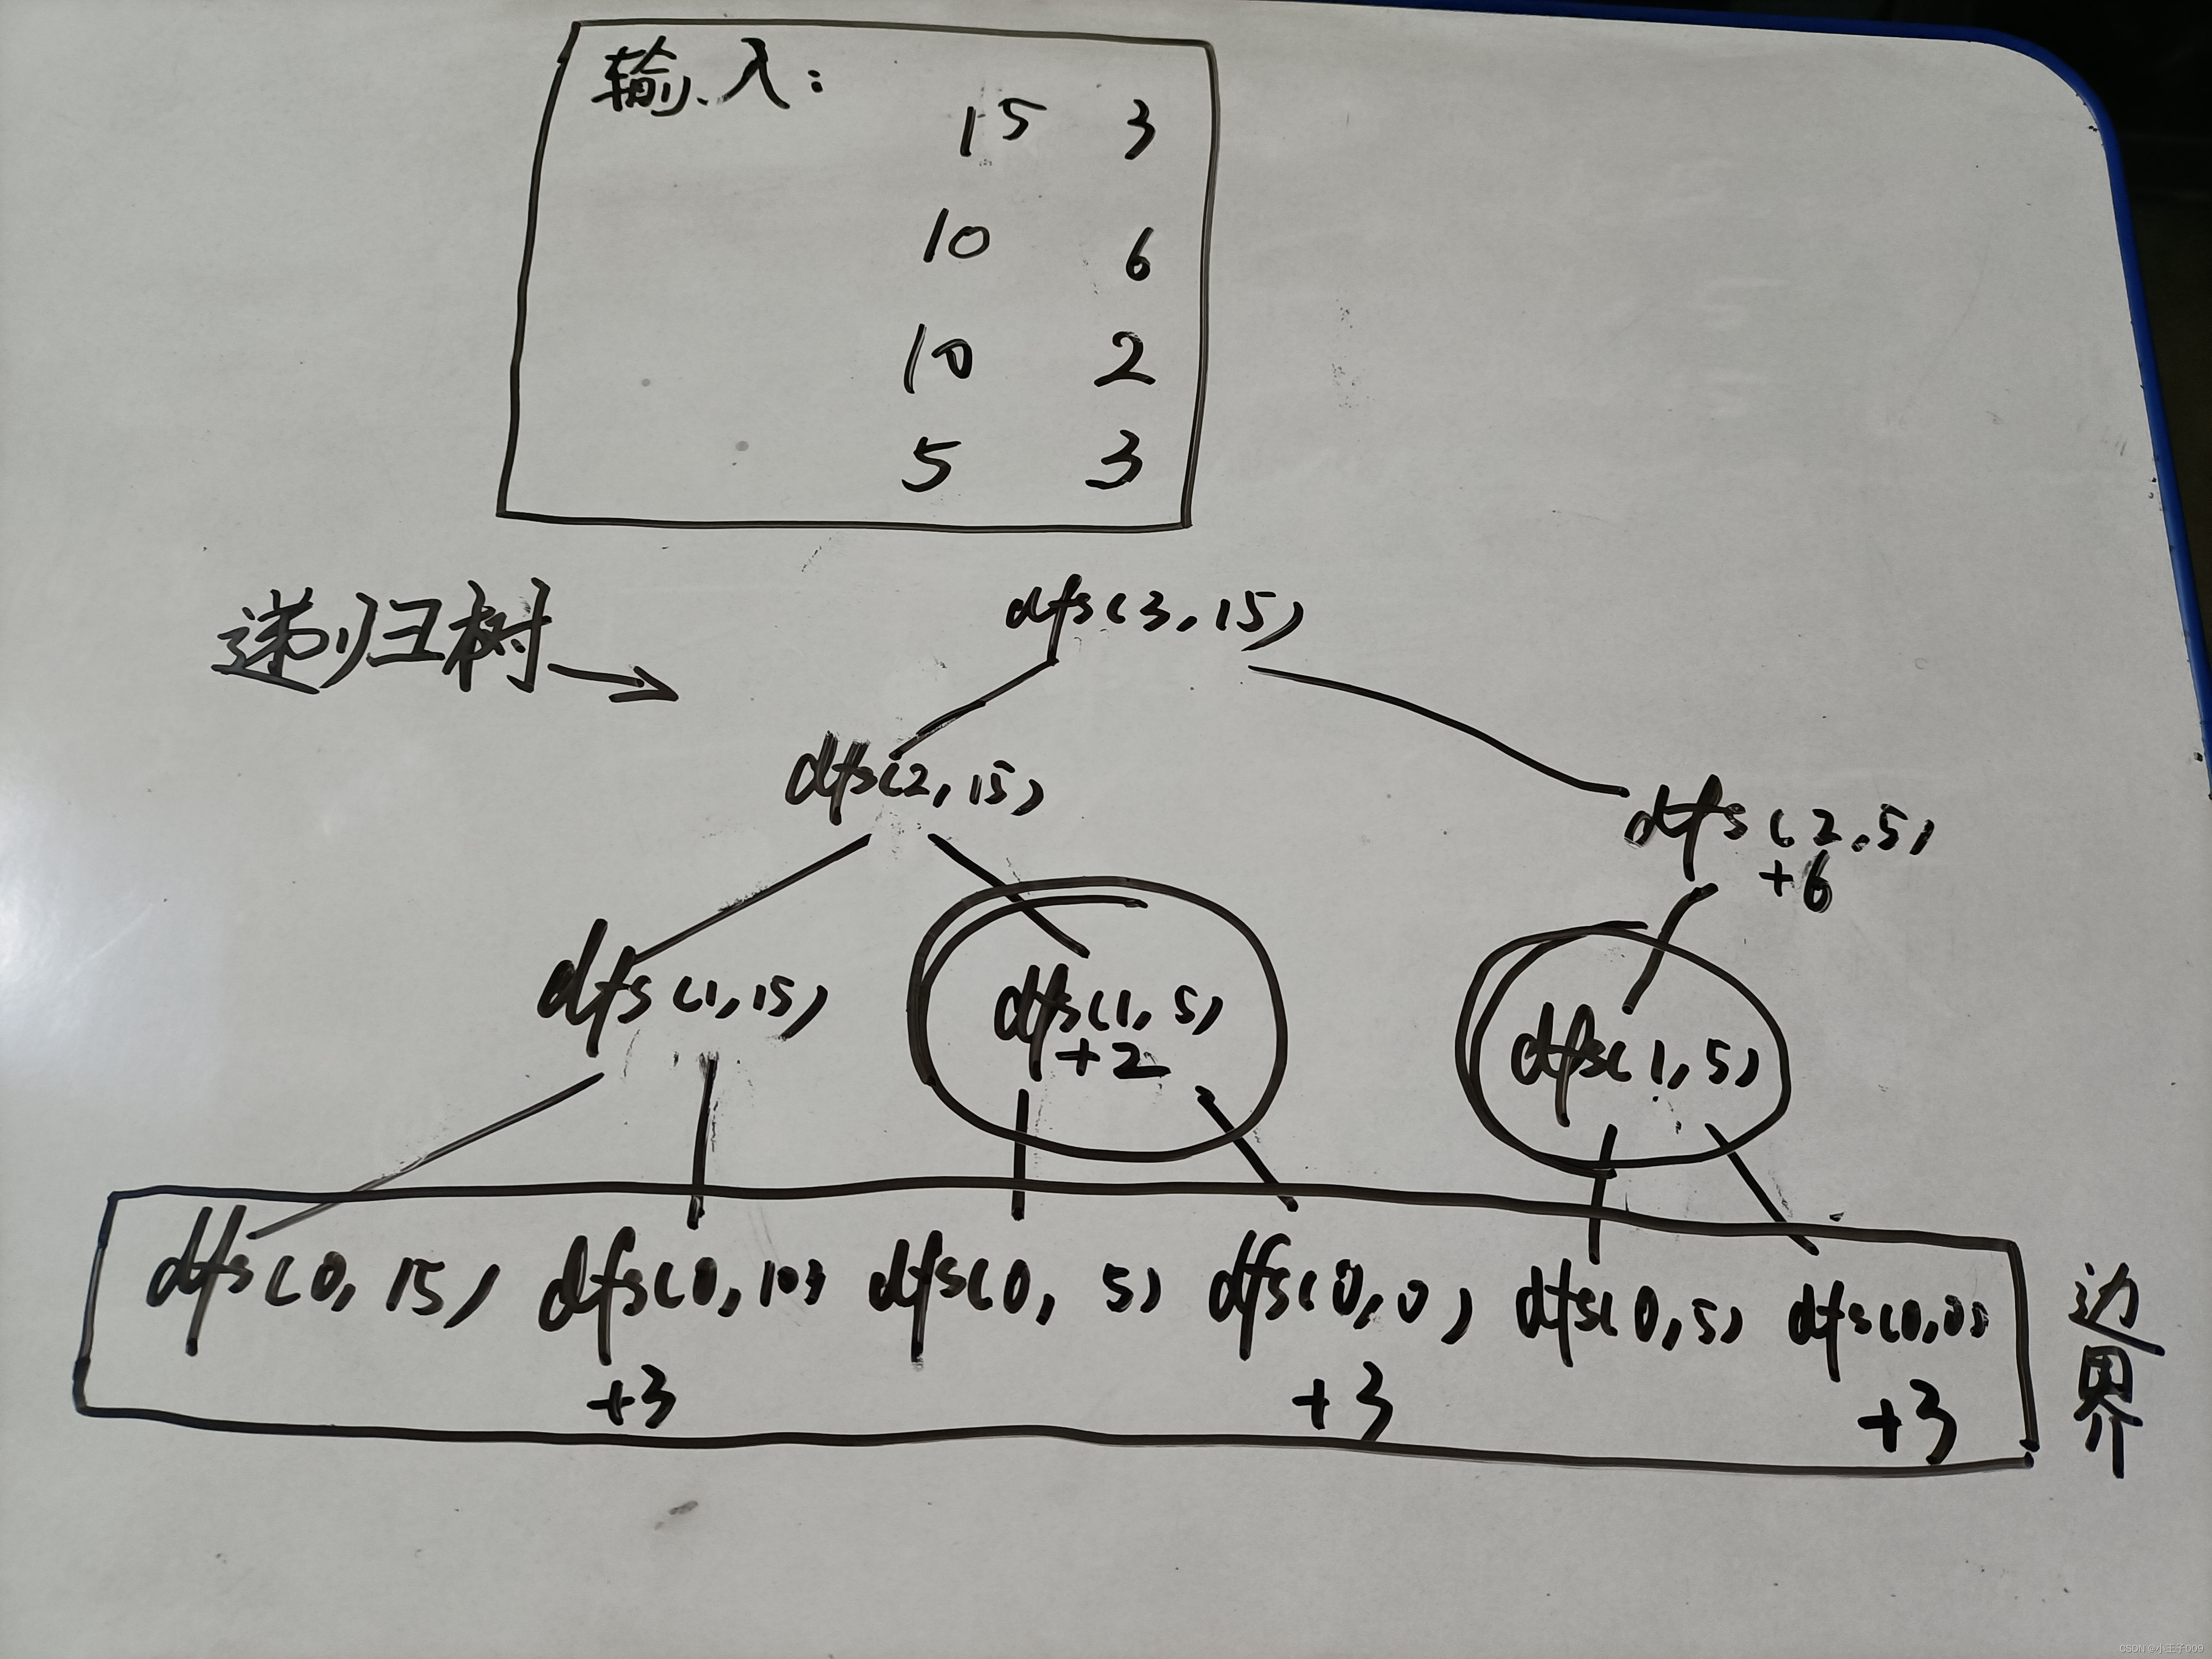 输入:
15 3
10 6
10 2
5 3
递归树
dfs(3,15)
dfs(2,15)
dfs(2,5)
+6
dfs(1,15)
dfs(1,5)
+2
dfs(1,5)
dfs(0,15) dfs(0,10) dfs(0,5) dfs(0,0) dfs(0,5) dfs(0,0)
+3 +3 +3
边界
CSDN @小王子009